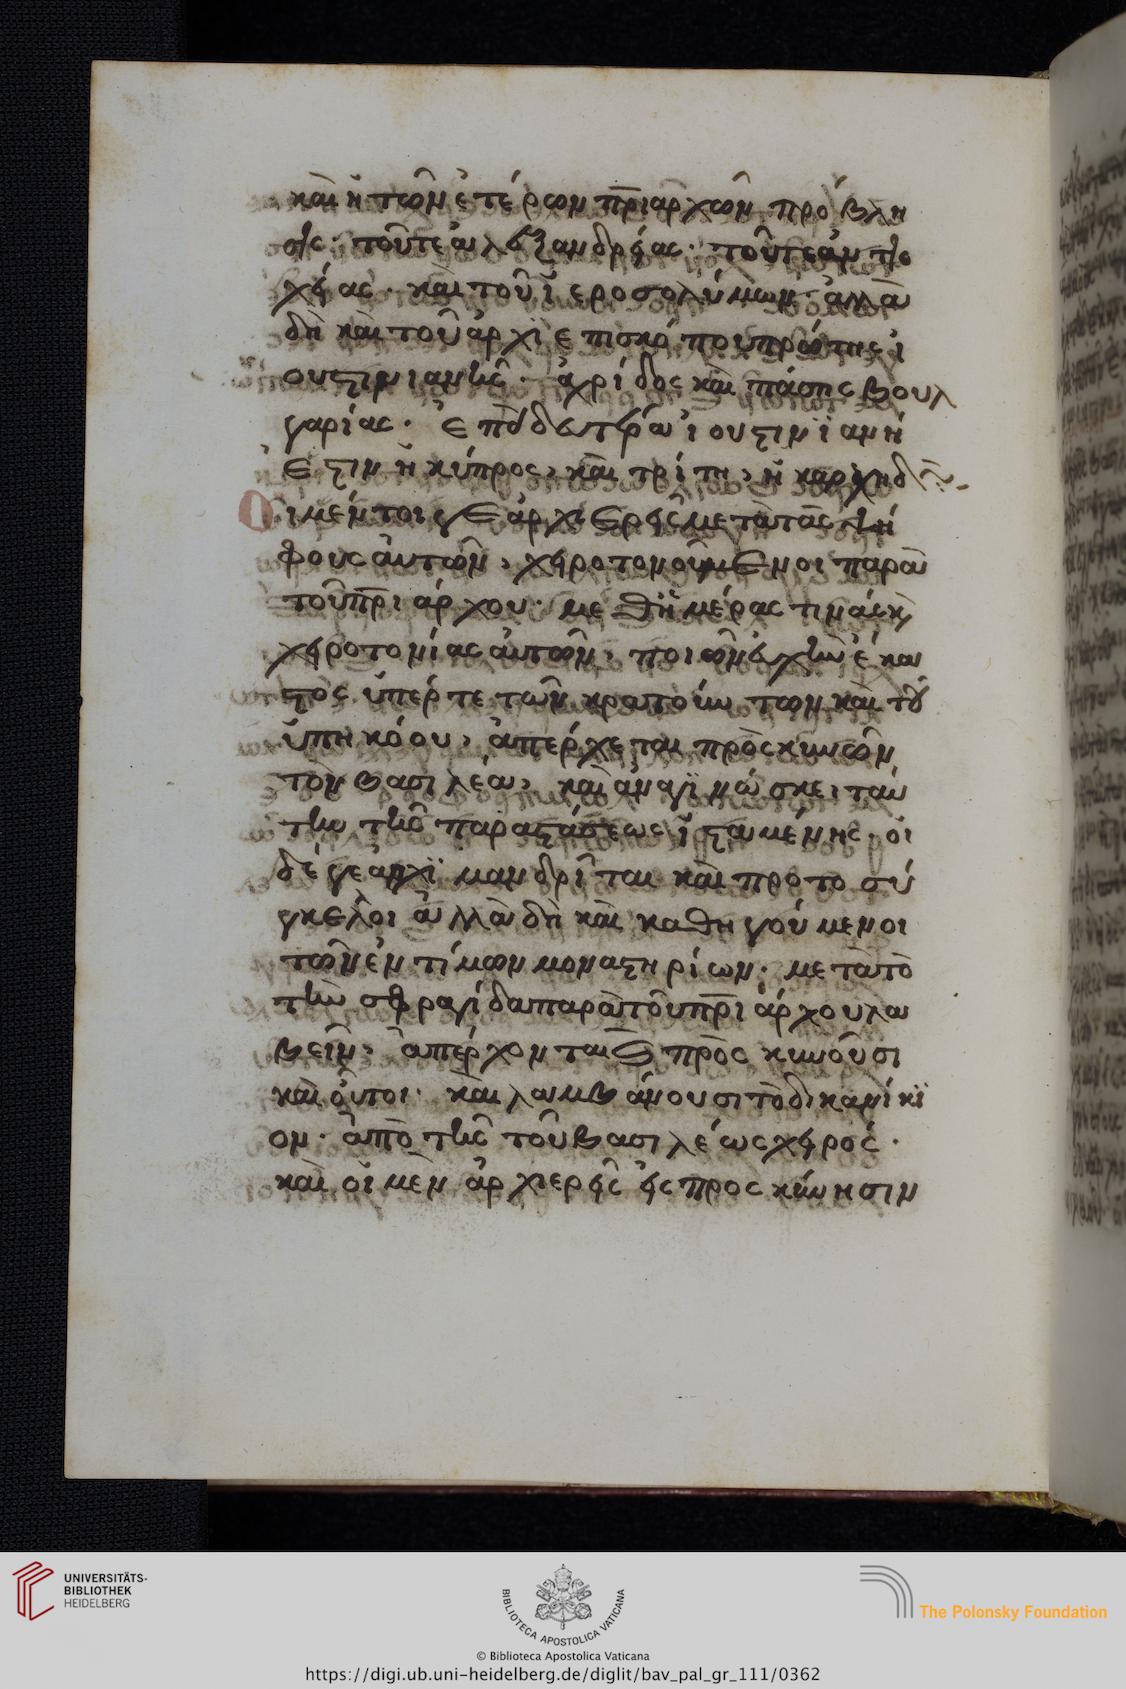 καὶ ἡ τῶν ἑτέρων πρι̅αρχῶν πρόβλη
σις· τοῦ τε ἀλεξανδρείας· τοῦ τε ἀντιο
χείας· καὶ τοῦ ἱεροσολύμων· ἀλλὰ
δὴ καὶ τοῦ ἀρχιεπισκόπου πρώτης ἰ
ουστινιανῆς· ἀχρίδος καὶ πάσης βουλ
γαρίας· ἐπεὶ δευτέρα ἰουστινϊανή
ἐστιν ἡ κύπρος, καὶ τρίτη, ἡ καρχηδών.
Οἱ μέντοι γε ἀρχιερεῖς μετὰ τὰς ψή
φους αὐτῶν, χειροτονούμενοι παρὰ
τοῦ πρι̅άρχου· μεθ' ἡμέρας τινάς κ
χειροτονίας αὐτῶν, ποιῶν εὐχὴν ἕκα
στος ὑπέρ τε τῶν κρατούντων καὶ τοῦ
ὑπηκόου, ἀπέρχεται προσκυνῶν
τὸν βασιλέα, καὶ ἀναγϊνώσκει ταύ
την τῆς παραστάσεως ἱσταμένης· οἱ
δέ γε ἀρχϊμανδρῖται καὶ πρωτοσύ
γκελοι ἀλλὰ δὴ καὶ καθηγούμενοι
τῶν ἐντίμων μοναστηρίων· μετὰ τὸ
τὴν σφραγίδα παρὰ τοῦ πρι̅άρχου λα
βεῖν, ἀπέρχονται προσκυνοῦσι
καὶ οὗτοι· καὶ λαμβάνουσι τὸ δικανίκϊ
ον· ἀπὸ τῆς τοῦ βασιλέως χειρός·
καὶ οἱ μὲν ἀρχιερεῖς εἰς προσκύνησιν
UNIVERSITÄTS-
BIBLIOTHEK
HEIDELBERG
BIBLIOTECA APOSTOLICA VATICANA
The Polonsky Foundation
© Biblioteca Apostolica Vaticana
https://digi.ub.uni-heidelberg.de/diglit/bav_pal_gr_111/0362